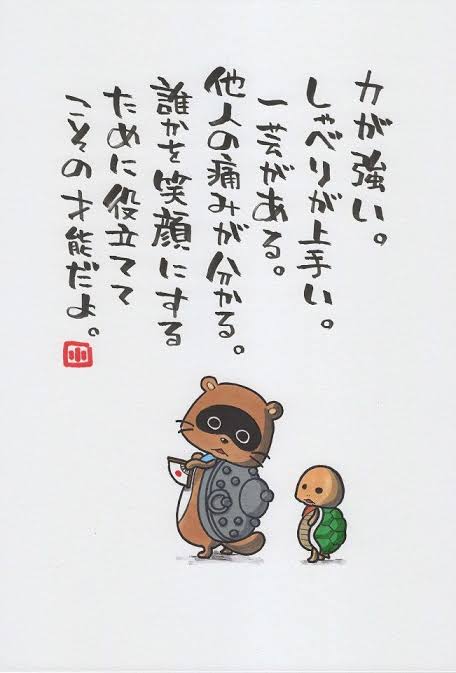 力が強い。
しゃべりが上手い。
一芸がある。
他人の痛みが分かる。
誰かを笑顔にする
ために役立てて
こその才能だよ。
小